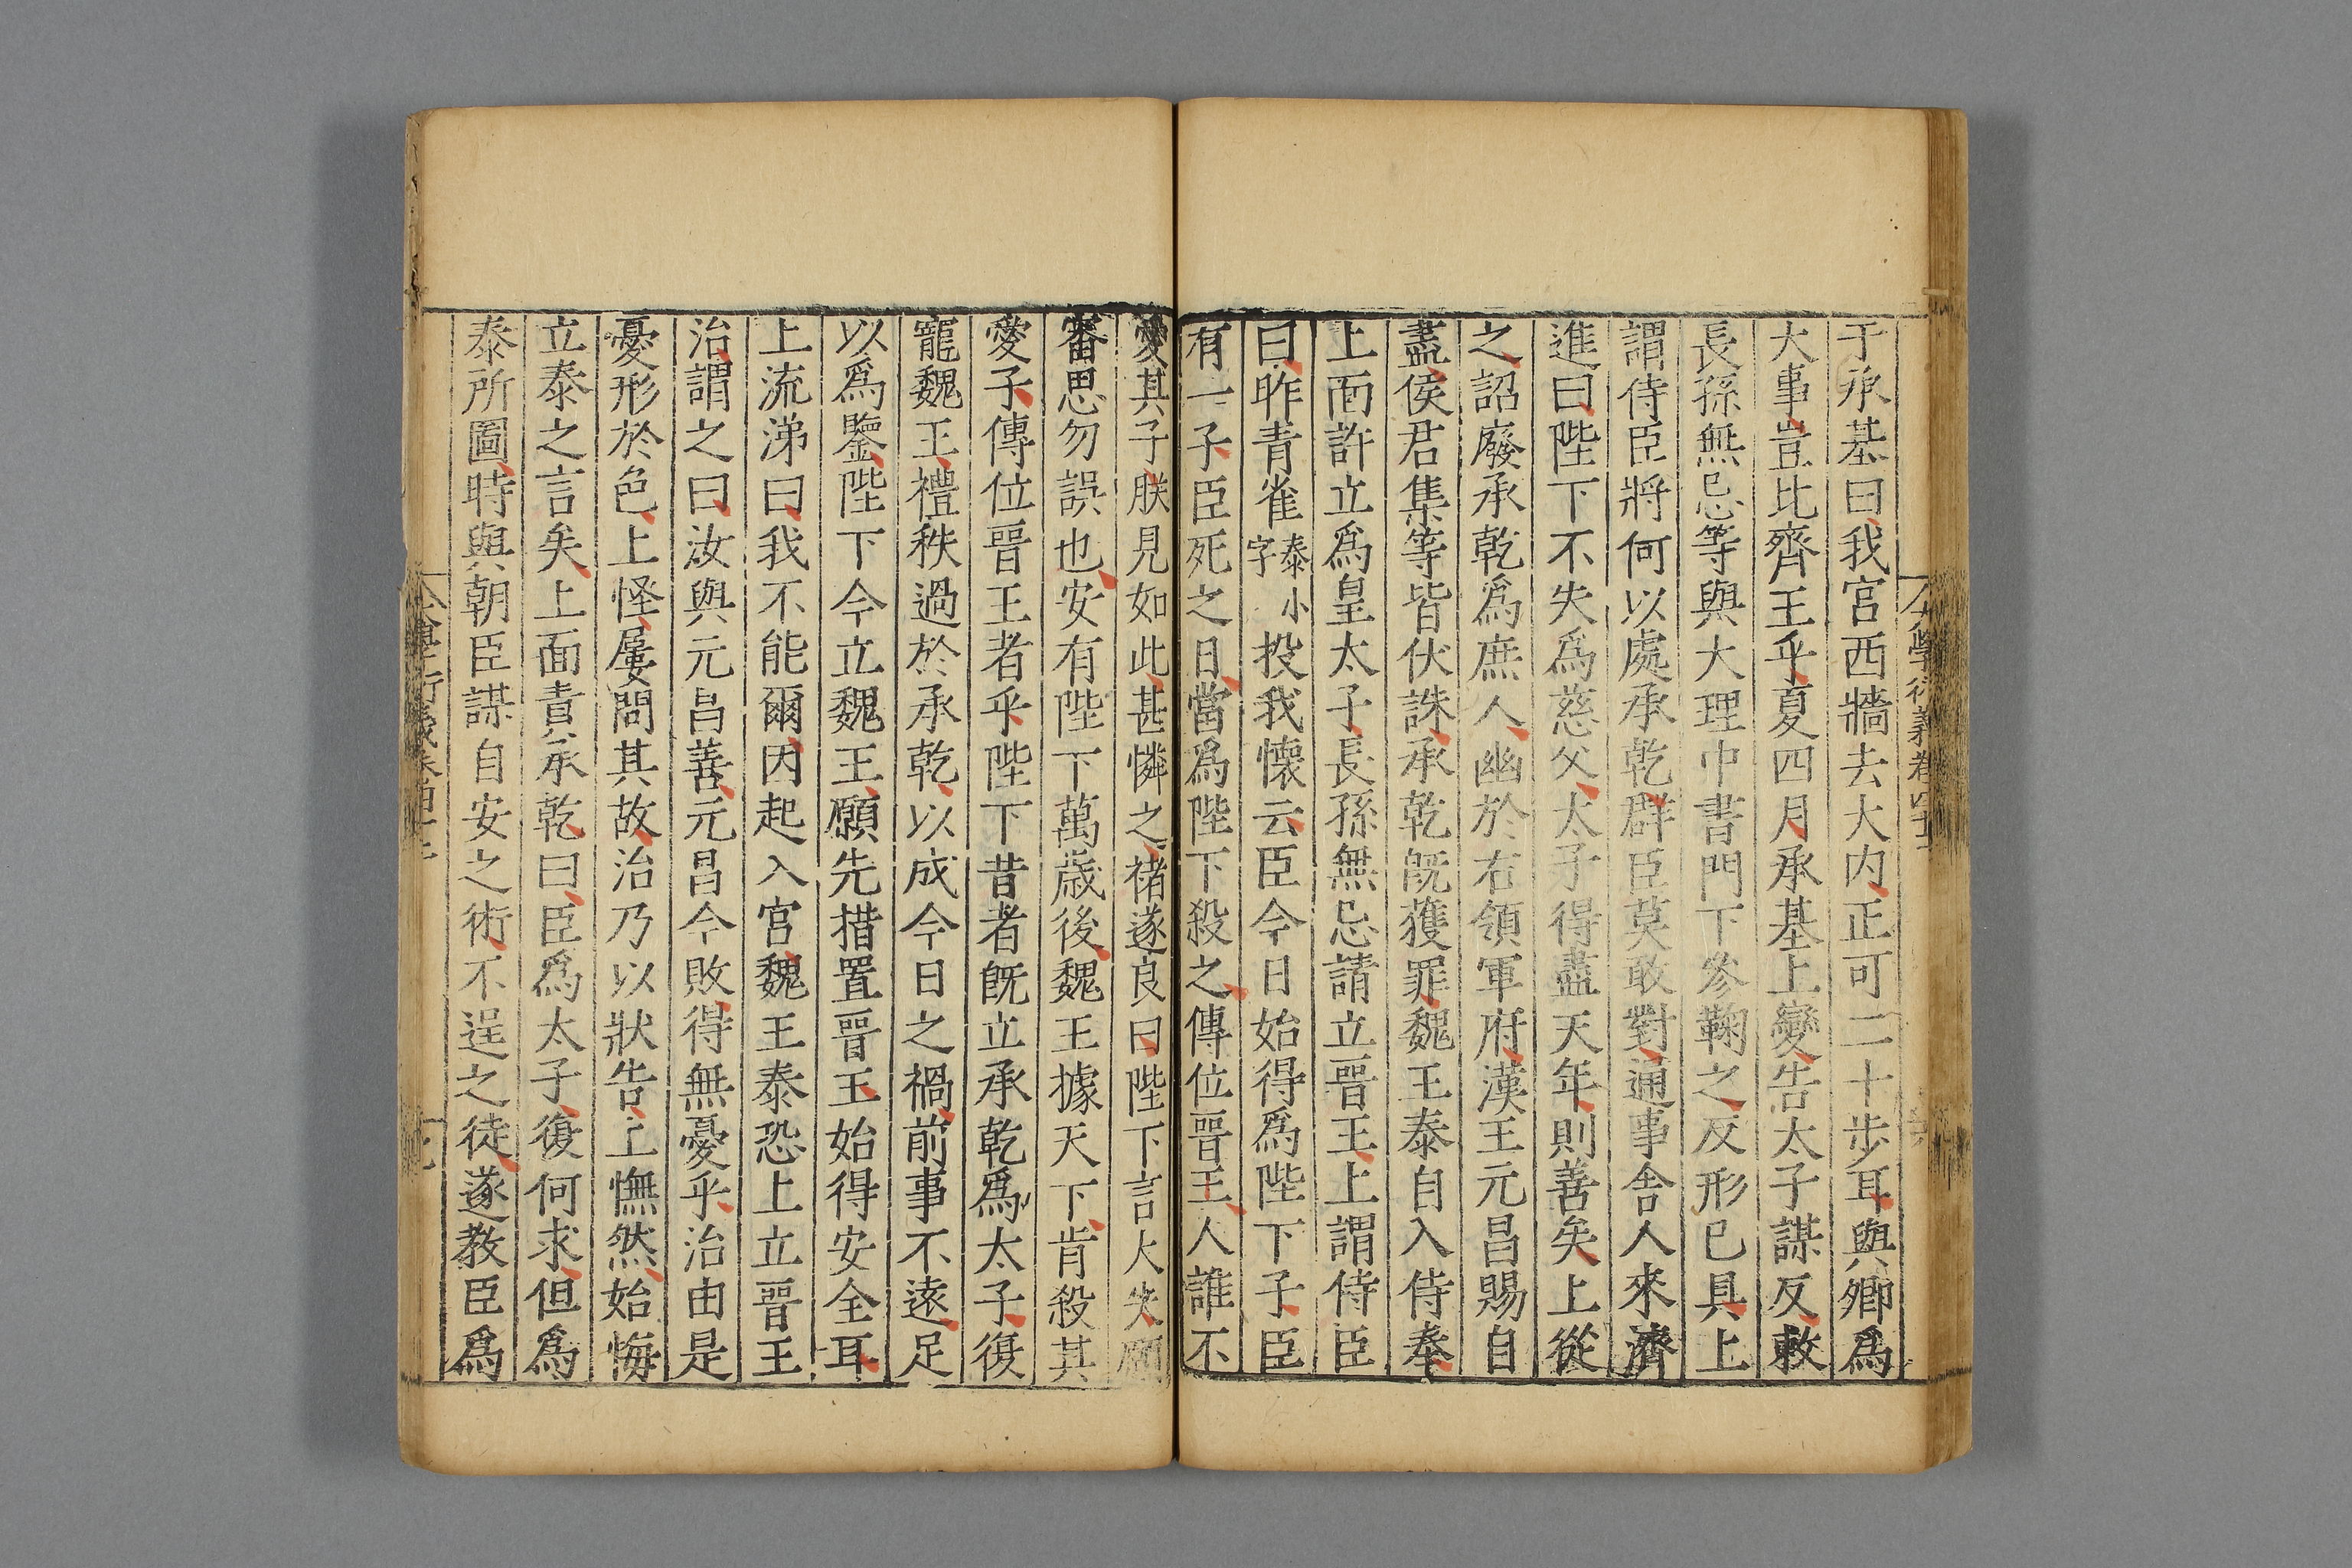 于承基曰我宮西牆去大内正可二十步耳與卿爲
大事豈比齊王乎夏四月承基上變告太子謀反敕
長孫無忌等與大理中書門下參鞠之反形已具上
謂侍臣將何以處承乾群臣莫敢對通事舍人來濟
進曰陛下不失爲慈父太子得盡天年則善矣上從
之詔廢承乾爲庶人幽於右領軍府漢王元昌賜自
盡侯君集等皆伏誅承乾旣獲罪魏王泰自入侍奉
上面許立爲皇太子長孫無忌請立晉王上謂侍臣
曰昨青雀泰小字投我懷云臣今日始得爲陛下子臣
有一子臣死之日當爲陛下殺之傳位晉王人誰不
愛其子朕見如此甚憐之禇遂良曰陛下言大失願
審思勿誤也安有陛下萬歲後魏王據天下肯殺其
愛子傳位晉王者乎陛下昔者旣立承乾爲太子復
寵魏王禮秩過於承乾以成今日之禍前事不遠足
以爲鑒陛下今立魏王願先措置晉王始得安全耳
上流涕曰我不能爾因起入宮魏王泰恐上立晉王
治謂之曰汝與元昌善元昌今敗得無憂乎治由是
憂形於色上怪屢問其故治乃以狀告上憮然始悔
立泰之言矣上面責承乾曰臣爲太子復何求但爲
泰所圖時與朝臣謀自安之術不逞之徒遂教臣爲